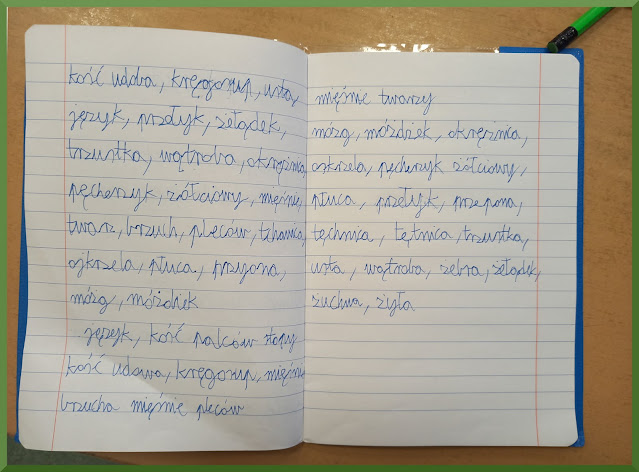 kość udoba, kręgosup, usta,
język, przełyk, żełądek,
trzustka, wątroba, okrężnica,
pęcherzyk, żółciowy, mięśnie,
twarz, brzuch, pleców, tchawica,
oskrzela, płuca, przypona,
mózg, móżdżek
język, kość palców stopy
kość udowa, kręgosup, mięśnie
brzucha mięśnie pleców
mięśnie twarzy
mózg, móżdżek, okrężnica,
oskrzela, pęcherzyk żółciowy,
płuca, przełyk, przepona,
tęchnica, tętnica, trzustka,
usta, wątroba, żebra, żełądek,
żuchwa, żyła